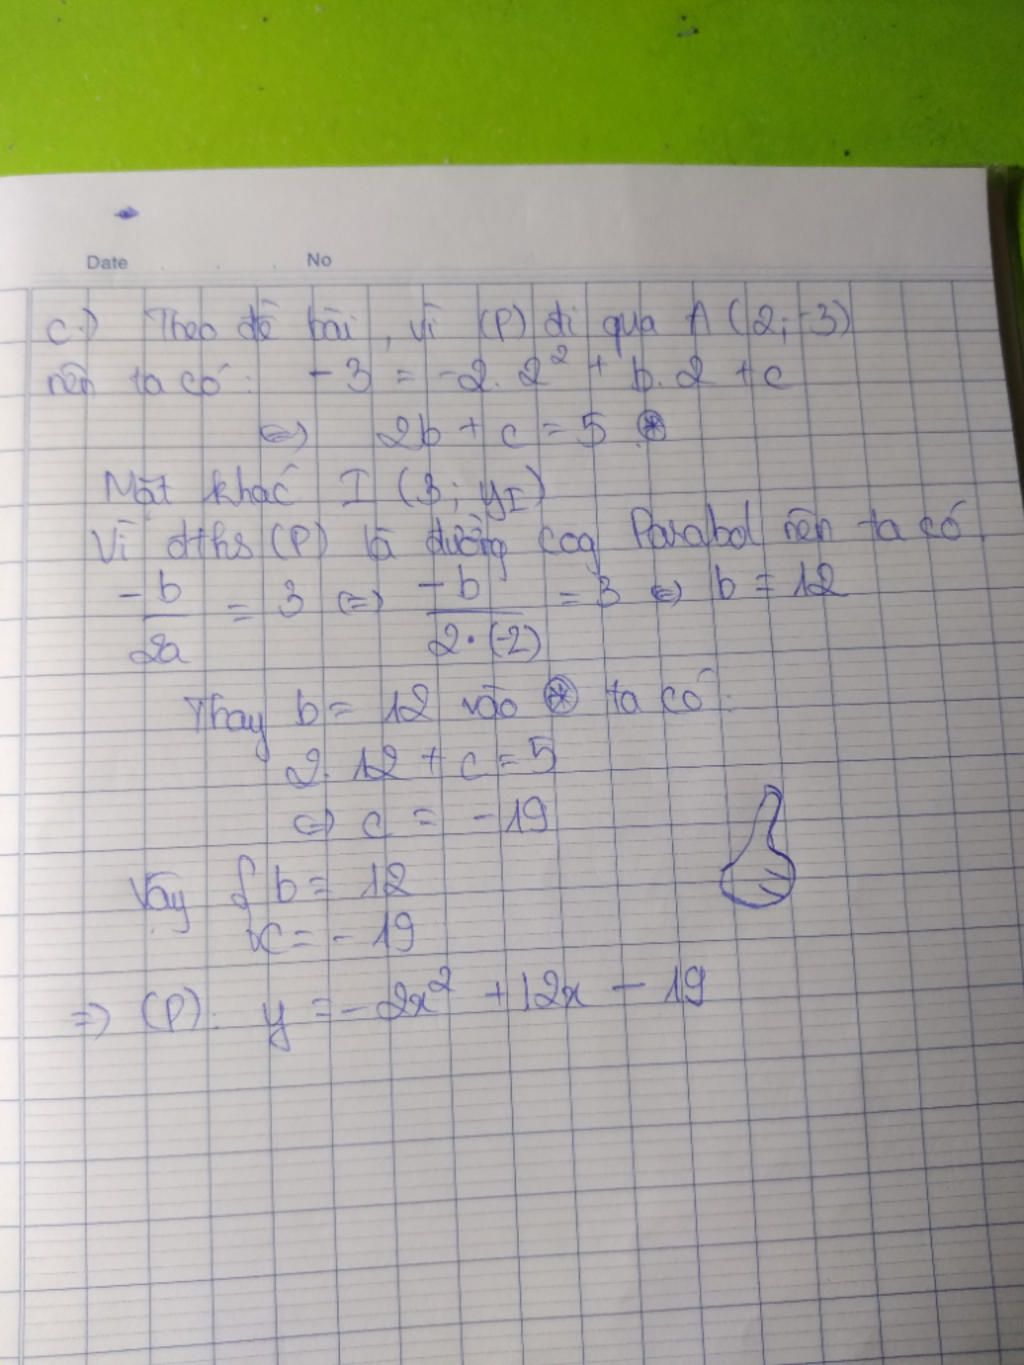 Date No
c.) Theo đề bài, vì (P) đi qua A (2; -3)
nên ta có: -3 = -2. 2² + b. 2 + c
<=> 2b + c = 5 (*)
Mặt khác I (3; y_I)
Vì đths (P) là đường cog Parabol nên ta có
-b/2a = 3 <=> -b/2.(-2) = 3 <=> b = 12
Thay b = 12 vào (*) ta có:
2. 12 + c = 5
<=> c = -19
Vậy { b = 12
c = - 19
=> (P): y = - 2x² + 12x - 19